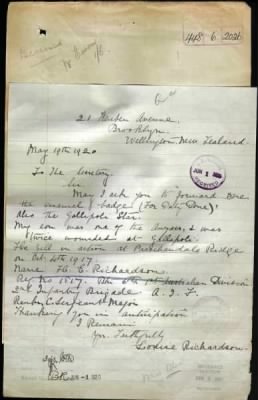 448 6 2021
21 Harbor Avenue,
Brooklyn,
Wellington, New Zealand.
May 19th 1920
To The
Sir
May I ask you to forward
the enamel badge (For Duty Done),
Also the Gallipoli Star.
My son was one of the Anzacs, & was
twice wounded at Gallipoli.
He fell in action at Passchendale Ridge
on Oct 4th 1917.
Name H. C. Richardson.
Reg No. 1517. 6th 1st Australian Division
2nd Infantry Brigade A. I. F.
Rank C. Sergeant Major
Thanking you in anticipation
I Remain
Yrs Faithfully
Richardson.
JUN 1 1920